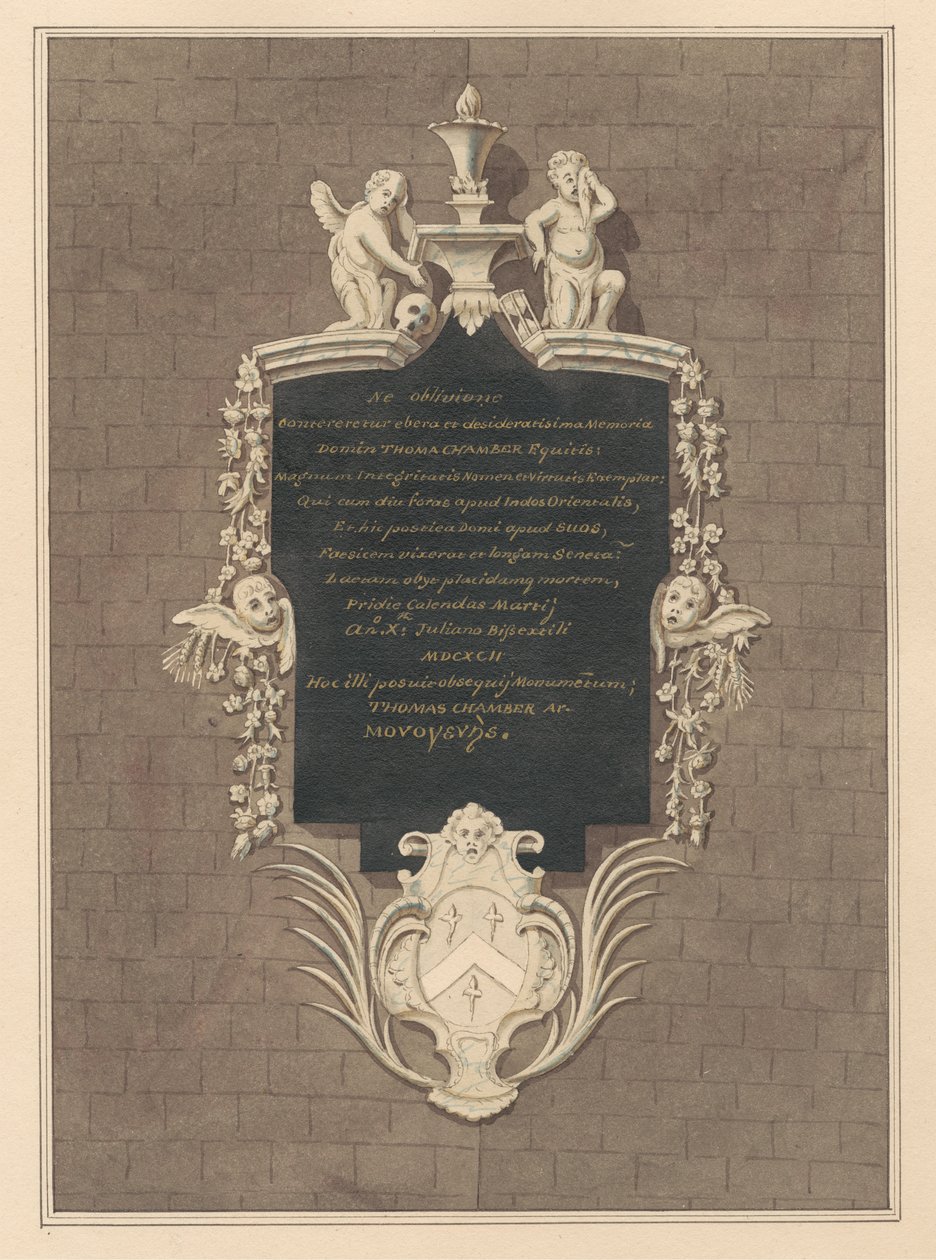 Ne oblivione
Contereretur ebera et desideratisima Memoria
Domin THOMA CHAMBER Equitis:
Magnum Integritatis Nomen et Virtutis Exemplar:
Qui cum diu foras apud Indos Orientalis,
Et hic postica Domi apud SUOS,
Faesicem vixerat et longam Seneta:~
Laetam obyt placidamq mortem,
Pridie Calendas Martij
An.º Xᵗʰ: Juliano Bißextili
MDCXCII
Hoc illi posuit obsequij Monumētum;
THOMAS CHAMBER Ar-
ΜΟΥΟγενὴς.